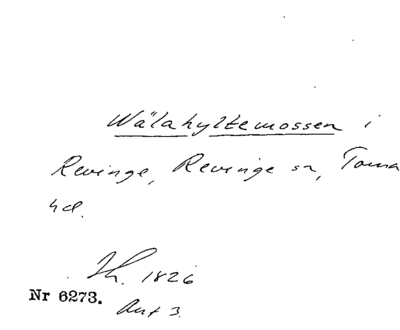 Wälahyltemossen i
Revinge, Revinge sn, Torna
hd.
Th. 1826
Nr 6273.
Akt 3.